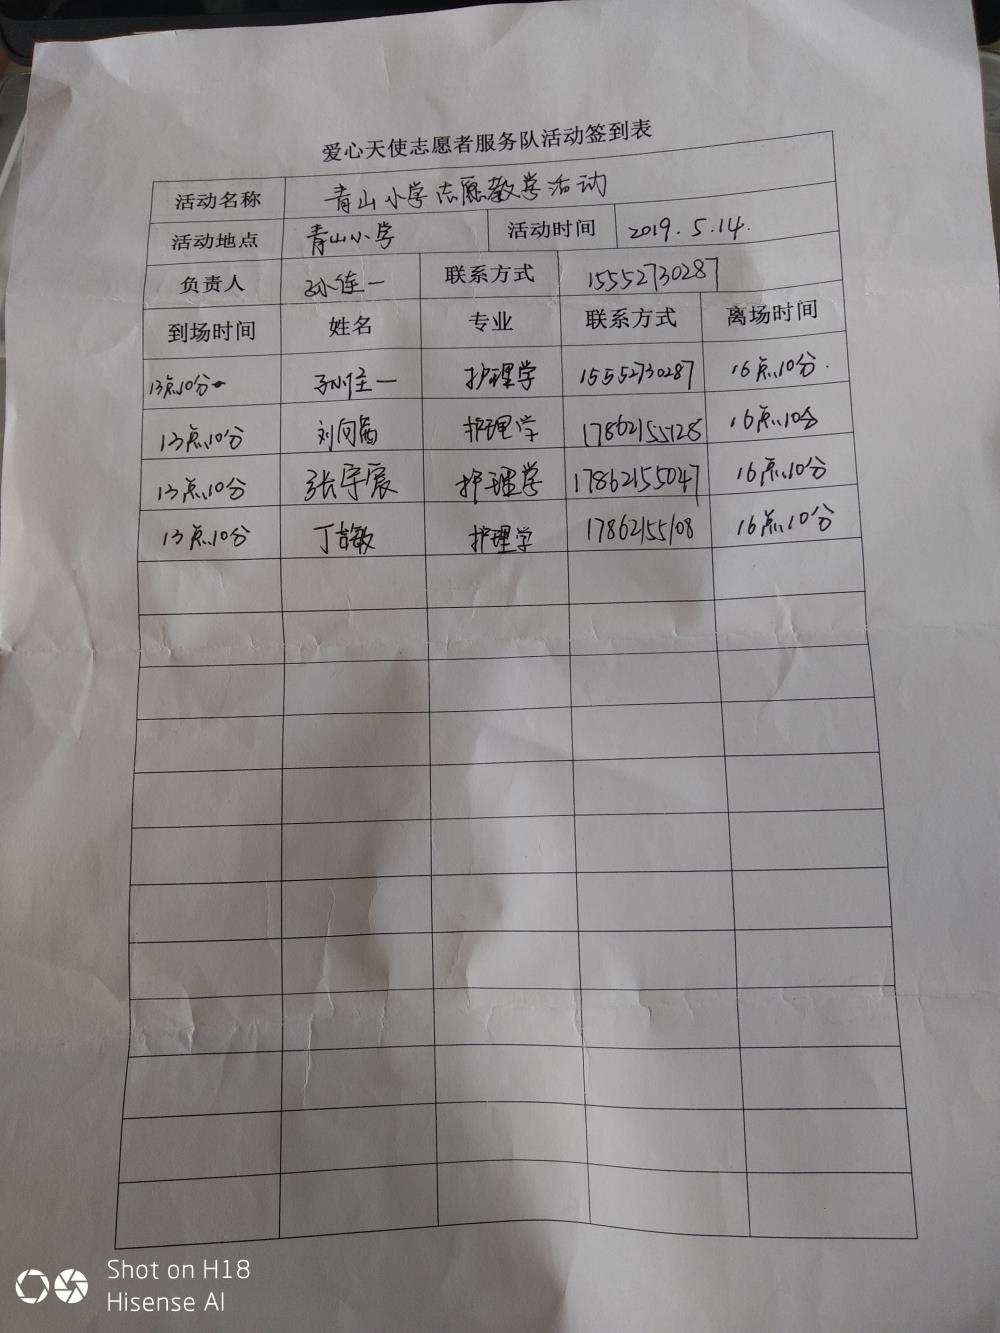 爱心天使志愿者服务队活动签到表
活动名称 青山小学志愿教学活动
活动地点 青山小学 活动时间 2019.5.14.
负责人 孙佳一 联系方式 15552730287
到场时间 姓名 专业 联系方式 离场时间
13点10分 孙佳一 护理学 15552730287 16点10分.
13点10分 刘向 护理学 17862155128 16点10分
13点10分 张宇宸 护理学 17862155047 16点10分
13点10分 丁敏 护理学 17862155108 16点10分
Shot on H18
Hisense AI